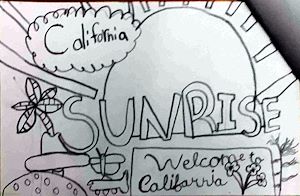 California
SUNRISE
Welcome to
Califarria